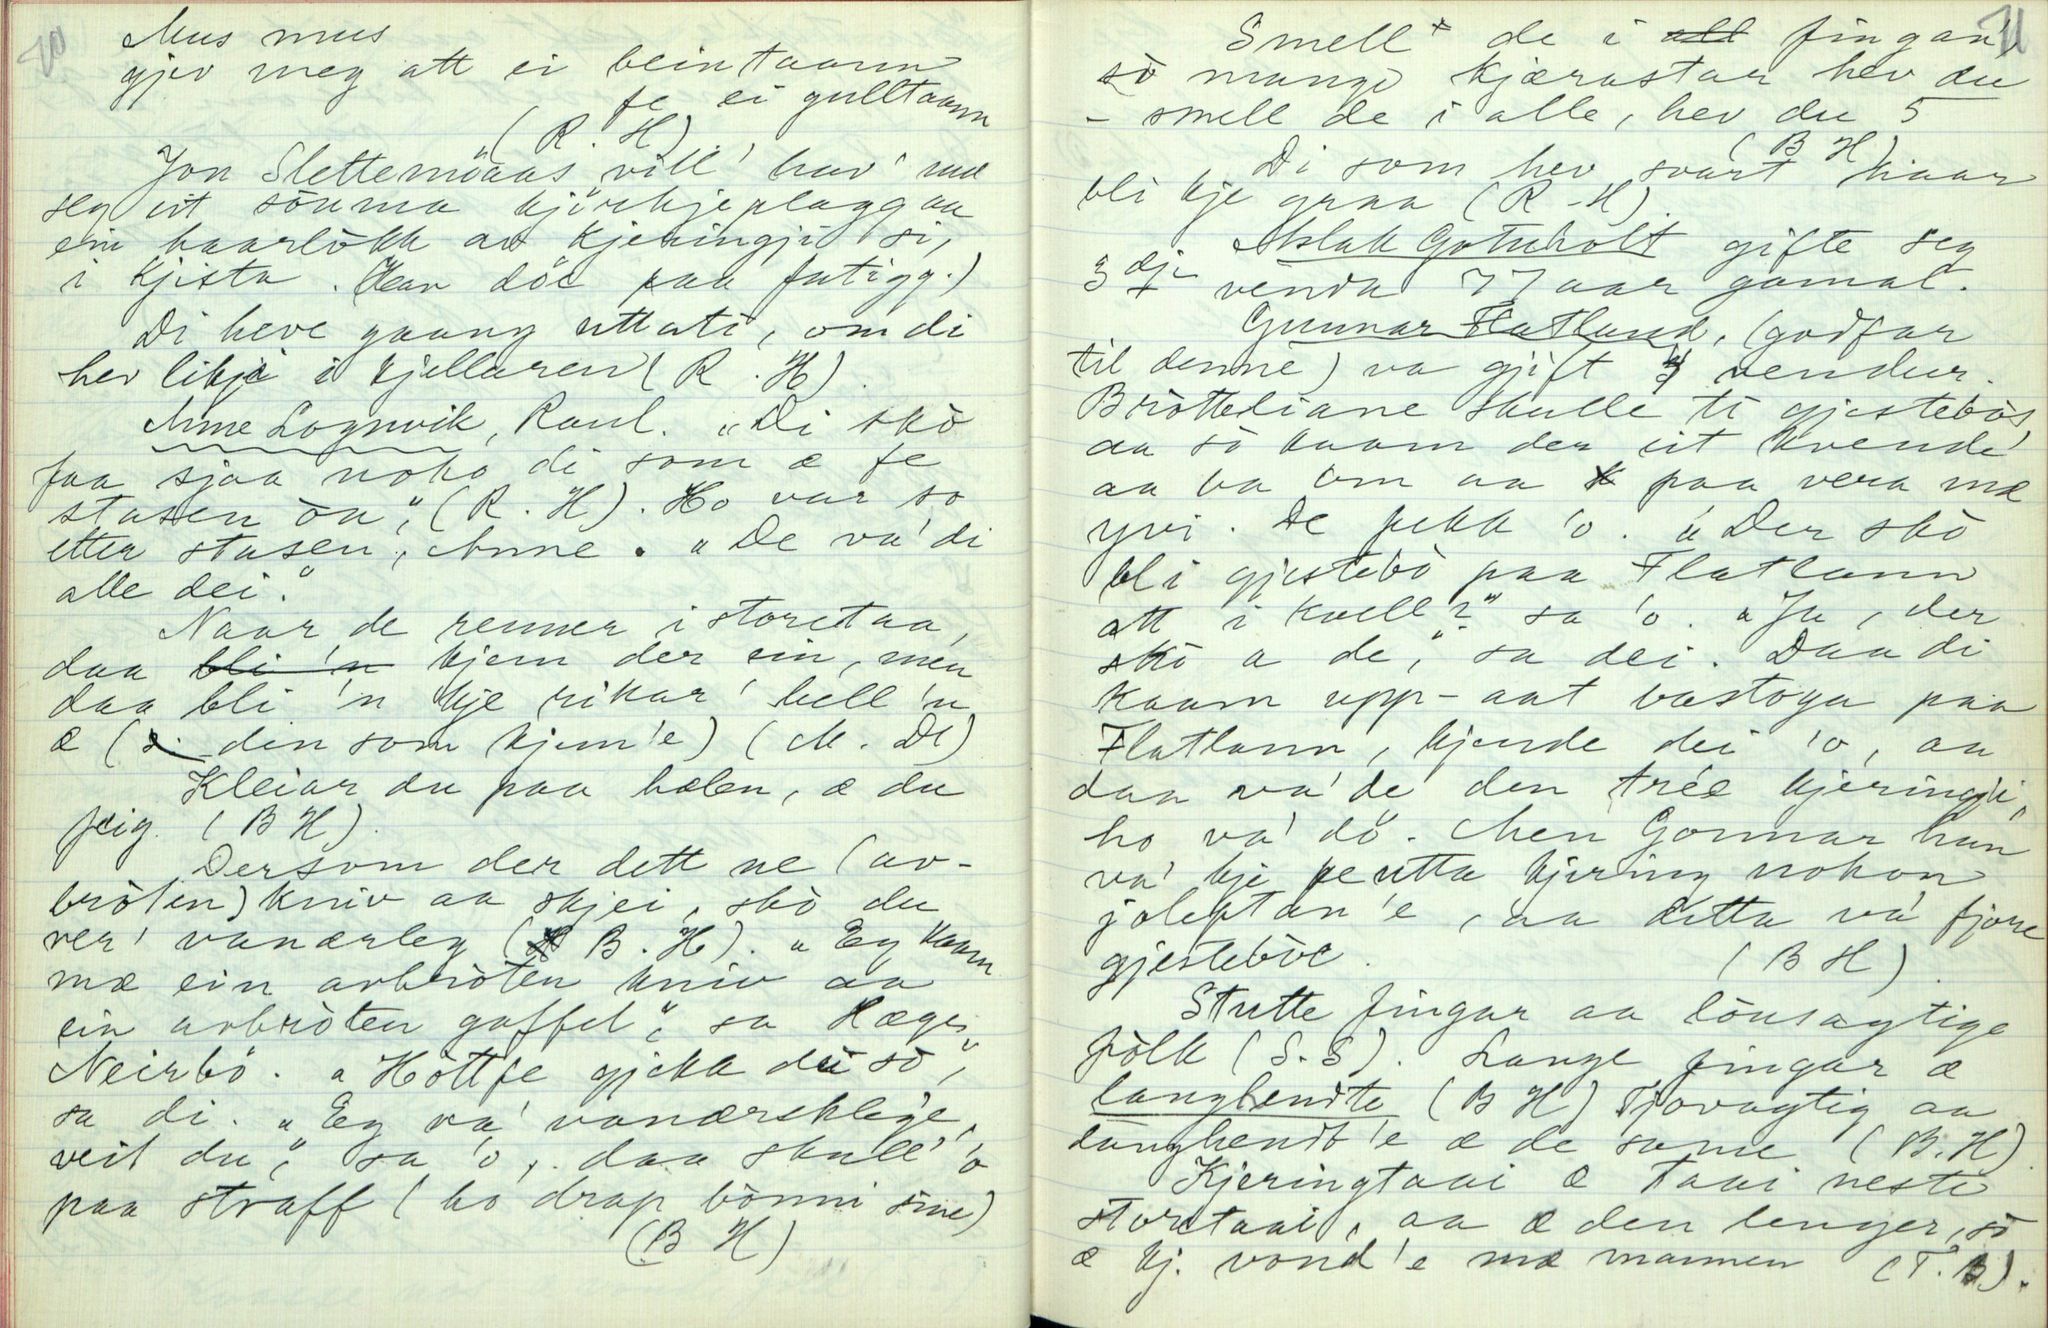 70
Mus mus
gjev meg att ei beintaann
fe ei gulltaann
(R. H)
Jon Slettemöaas vill' hav' mæ
seg ut sönma kjörkjeplaggaa
ein haarlòkk av kjeringji si,
i kjista. (Han döe paa fatigg.)
Di heve gaang uttati, om di
hev likji i kjellaren (R. H).
Anne Lognvik, Raul. "Di skò
faa sjaa noko di som æ fe
stasen òu", (R. H). Ho var so
etter stasen, Anne. "De va' di
alle dei."
Naar de renner i storetaa,
daa bli 'n kjem der ein, men
daa bli 'n kje rikar' hell 'n
æ (s. den som kjem'e) (M. Dl)
Kleiar du paa hælen, æ du
feig. (B H).
Dersom der dett ne (av-
bròten) kniv aa skjei, skò du
ver' vanærleg (B. H). "Eg kaam
mæ ein avbròten kniv aa
ein avbròten gaffel", sa Hæge
Neirbö. "Hòtt fe gjekk du sò",
sa di. "Eg va' vanærsklege,
veit du", sa 'o, daa skull' 'o
paa straff (ho drap bònni sine)
(B H)
71
Smell de i all fingan',
sò mange kjærastar hev du
- smell de i alle, hev du 5
(B H)
Di som hev svart haar
bli kje graa (R. H).
Aslak Gotuholt gifte seg
3dje venda 77 aar gamal.
Gunnar Flatland, (godfar
til denne) va gjift 4 vendur.
Bròtteliane skulle ti gjestebòs
aa sò kaam der eit kvende
aa ba om aa paa vera mæ
yvi. De fekk 'o. "Der skò
bli gjestebò paa Flatlann
att i kvell?" sa 'o. "Ja, der
skò a de," sa dei. Daa di
kaam upp-aat bastoga paa
Flatlann, kjende dei 'o, aa
daa va' de den trée kjeringji,
ho va' dö. Men Gonnar han
va' kje fe utta kjering nokon
joleftan 'e, aa ditta va' fjore
gjestebòe. (B H).
Stutte fingar aa lönsagtige
fòlk (S. S). Lange fingar æ
langhendte (B H) Tjovagtig aa
langhendt'e æ de same (B. H).
Kjeringtaai æ taai neste
storetaai, aa æ den lenger, sò
æ kj. vond'e mæ mannen (T. B).